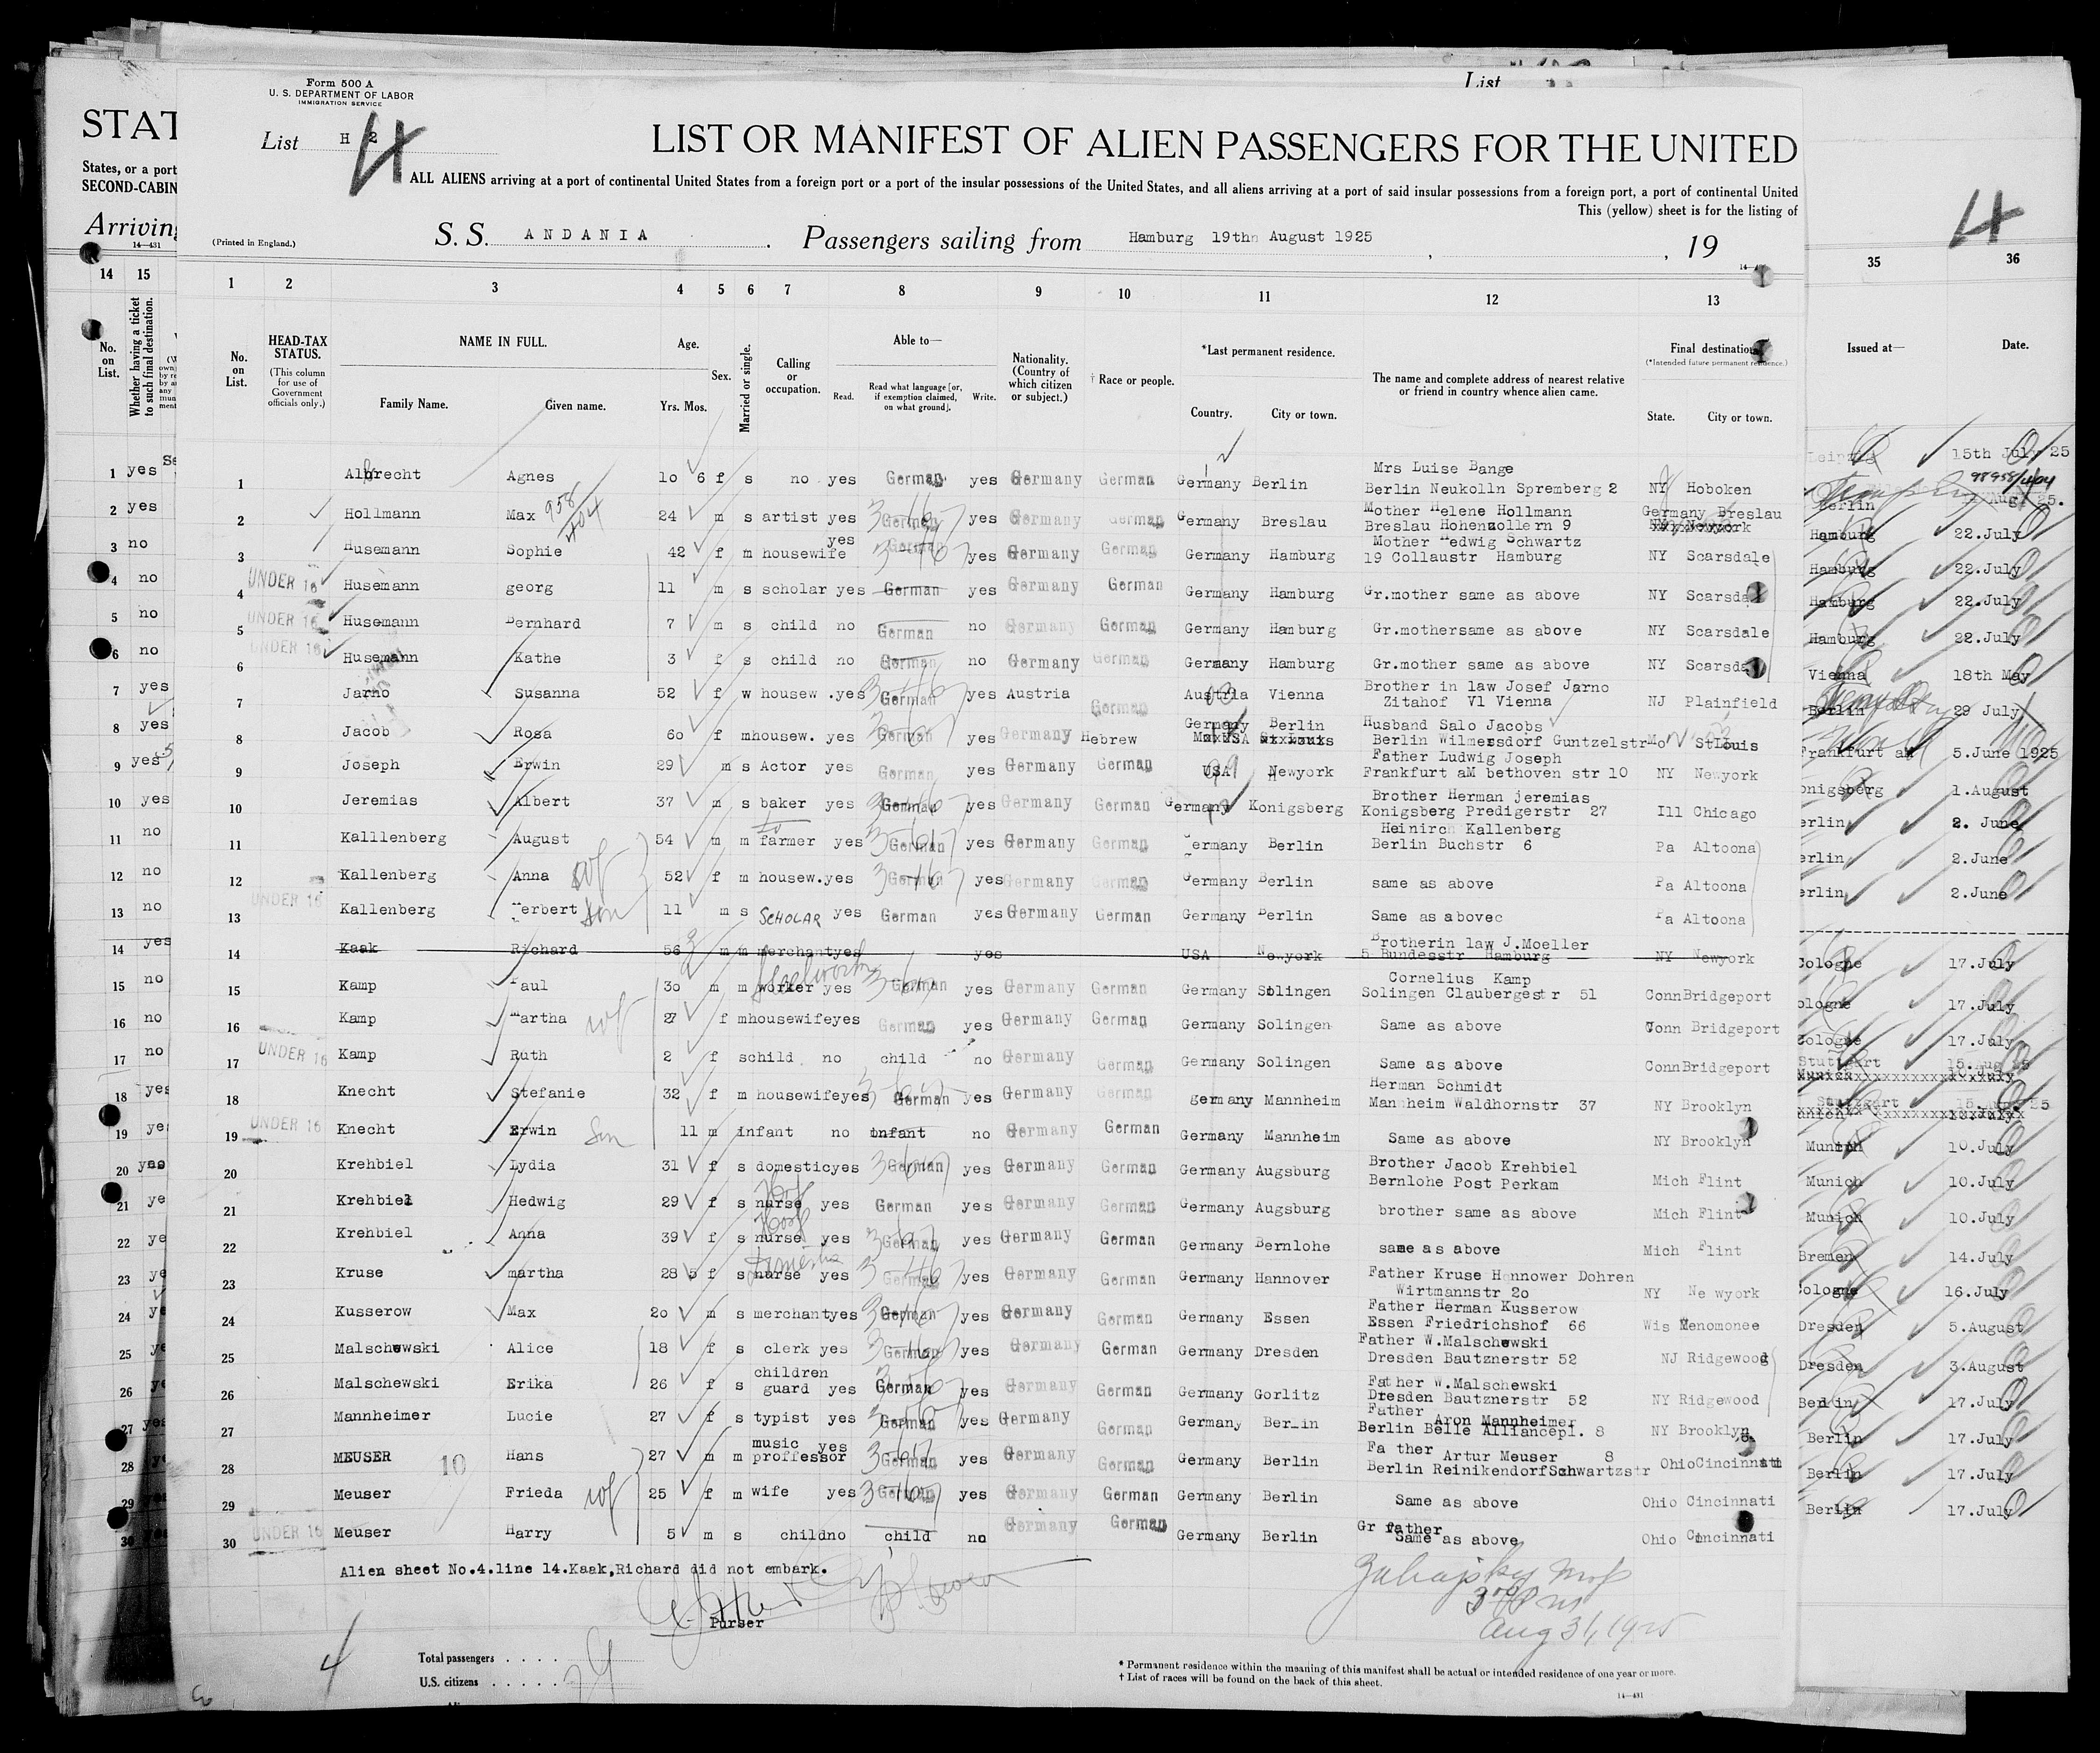 Form 500 A
U. S. DEPARTMENT OF LABOR
IMMIGRATION SERVICE
List H 2
4
List
STAT
LIST OR MANIFEST OF ALIEN PASSENGERS FOR THE UNITED
States, or a port
SECOND-CABIN
ALL ALIENS arriving at a port of continental United States from a foreign port or a port of the insular possessions of the United States, and all aliens arriving at a port of said insular possessions from a foreign port, a port of continental United
This (yellow) sheet is for the listing of
Arriving
14—431
(Printed in England.)
S. S. ANDANIA . Passengers sailing from Hamburg 19th August 1925 , , 19
4
14 15 1 2 3 4 5 6 7 8 9 10 11 12 13 35 36
No. on List.
Whether having a ticket to such final destination.
No. on List.
HEAD-TAX STATUS.
(This column for use of Government officials only.)
NAME IN FULL.
Family Name. Given name.
Age.
Yrs. Mos.
Sex.
Married or single.
Calling or occupation.
Able to—
Read. Read what language [or, if exemption claimed, on what ground]. Write.
Nationality. (Country of which citizen or subject.)
† Race or people.
*Last permanent residence.
Country. City or town.
The name and complete address of nearest relative or friend in country whence alien came.
Final destination
(*Intended future permanent residence.)
State. City or town.
Issued at— Date.
1 yes 1 Albrecht Agnes 10 6 f s no yes German yes Germany German Germany Berlin Mrs Luise Bange
Berlin Neukolln Spremberg 2 NY Hoboken 15th July 25
2 yes 2 Hollmann Max 958/404 24 m s artist yes German yes Germany German Germany Breslau Mother Helene Hollmann
Breslau Hohenzollern 9 Germany Breslau Berlin
98958/404
3 no 3 Husemann Sophie 42 f m housewife yes German yes Germany German Germany Hamburg Mother Hedwig Schwartz
19 Collaustr Hamburg NY Scarsdale Hamburg 22.July
4 no 4 UNDER 16 Husemann georg 11 m s scholar yes German yes Germany German Germany Hamburg Gr.mother same as above NY Scarsda Hamburg 22.July
5 no 5 UNDER 16 Husemann Bernhard 7 m s child no German no Germany German Germany Hamburg Gr.mothersame as above NY Scarsdale Hamburg 22.July
6 no 6 UNDER 16 Husemann Kathe 3 f s child no German no Germany German Germany Hamburg Gr.mother same as above NY Scarsda Hamburg 22.July
7 yes 7 Jarno Susanna 52 f w housew .yes German yes Austria German Austria Vienna Brother in law Josef Jarno
Zitahof V1 Vienna NJ Plainfield Vienna 18th May
8 yes 8 Jacob Rosa 60 f mhousew. yes German yes Germany Hebrew Germany Berlin Husband Salo Jacobs
Berlin Wilmersdorf Guntzelstr Mo StLouis Berlin 29 July
9 yes 9 Joseph Erwin 29 m s Actor yes German yes Germany German USA Newyork Father Ludwig Joseph
Frankfurt aM bethoven str 10 NY Newyork Frankfurt aM 5.June 1925
10 yes 10 Jeremias Albert 37 m s baker yes German yes Germany German Germany Konigsberg Brother Herman jeremias
Konigsberg Predigerstr 27 Ill Chicago onigsberg 1.August
11 no 11 Kalllenberg August 54 m m farmer yes German yes Germany German Germany Berlin Heinirch Kallenberg
Berlin Buchstr 6 Pa Altoona erlin 2. June
12 no 12 Kallenberg Anna wf 52 f m housew.yes German yes Germany German Germany Berlin same as above Pa Altoona erlin 2.June
13 no 13 UNDER 16 Kallenberg Herbert son 11 m s SCHOLAR yes German yes Germany German Germany Berlin Same as abovec Pa Altoona erlin 2.June
14 yes 14 Kaak Richard 56 m m merchantyes yes USA Newyork Brotherin law J.Moeller
5 Bundesstr Hamburg NY Newyork
15 no 15 Kamp Paul 30 m m worker yes German yes Germany German Germany Solingen Cornelius Kamp
Solingen Claubergestr 51 ConnBridgeport Cologne 17.July
16 no 16 Kamp Martha wf 27 f mhousewifeyes German yes Germany German Germany Solingen Same as above Conn Bridgeport ologne 17.July
17 no 17 UNDER 16 Kamp Ruth 2 f schild no child no Germany German Germany Solingen Same as above ConnBridgeport Cologne 17.July
18 yes 18 Knecht Stefanie 32 f m housewifeyes German yes Germany German germany Mannheim Herman Schmidt
Manheim Waldhornstr 37 NY Brooklyn Stuttgart 15.Aug 25
19 yes 19 UNDER 16 Knecht Erwin Son 11 m infant no infant no Germany German Germany Mannheim Same as above NY Brooklyn Stuttgart 15.Aug 25
20 20 Krehbiel Lydia 31 f s domesticyes German yes Germany German Germany Augsburg Brother Jacob Krehbiel
Bernlohe Post Perkam Mich Flint Munich 10.July
21 ye 21 Krehbiel Hedwig 29 f s nurse yes German yes Germany German Germany Augsburg brother same as above Mich Flint Munich 10.July
22 ye 22 Krehbiel Anna 39 f s nurse yes German yes Germany German Germany Bernlohe same as above Mich Flint Munich 10.July
23 ye 23 Kruse martha 28 5 f s nurse yes German yes Germany German Germany Hannover Father Kruse Hannower Dohren
Wirtmannstr 20 NY Newyork Bremen 14.July
24 ye 24 Kusserow Max 20 m s merchantyes German yes Germany German Germany Essen Father Herman Kusserow
Essen Friedrichshof 66 Wis Menomonee ologne 16.July
25 ye 25 Malschewski Alice 18 f s clerk yes German yes Germany German Germany Dresden Father W.Malschewski
Dresden Bautznerstr 52 NJ Ridgewood Dresden 5.August
26 ye 26 Malschewski Erika 26 f s children guard yes German yes Germany German Germany Gorlitz Father W.Malschewski
Dresden Bautznerstr 52 NY Ridgewood Dresden 3.August
27 yes 27 Mannheimer Lucie 27 f s typist yes German yes Germany German Germany Berlin Father Aron Mannheimer
Berlin Belle Alliancepl. 8 NY Brooklyn Berlin 17.July
28 ye 28 MEUSER 10 Hans 27 m m music proffessor yes German yes Germany German Germany Berlin Father Artur Meuser 8
Berlin ReinikendorfSchwartzstr OhioCincinnati Berlin 17.July
29 yes 29 Meuser Frieda wf 25 f m wife yes German yes Germany German Germany Berlin Same as above Ohio Cincinnati Berlin 17.July
30 yes 30 UNDER 16 Meuser Harry 5 m s childno child no Germany German Germany Berlin Gr father
Same as above Ohio Cincinnati Berlin 17.July
Alien sheet No.4.line 14.Kaak,Richard did not embark.
Purser
3 PM
Aug 31, 1925
4
Total passengers . . . .
U.S. citizens . . . . .
* Permanent residence within the meaning of this manifest shall be actual or intended residence of one year or more.
† List of races will be found on the back of this sheet.
14—431